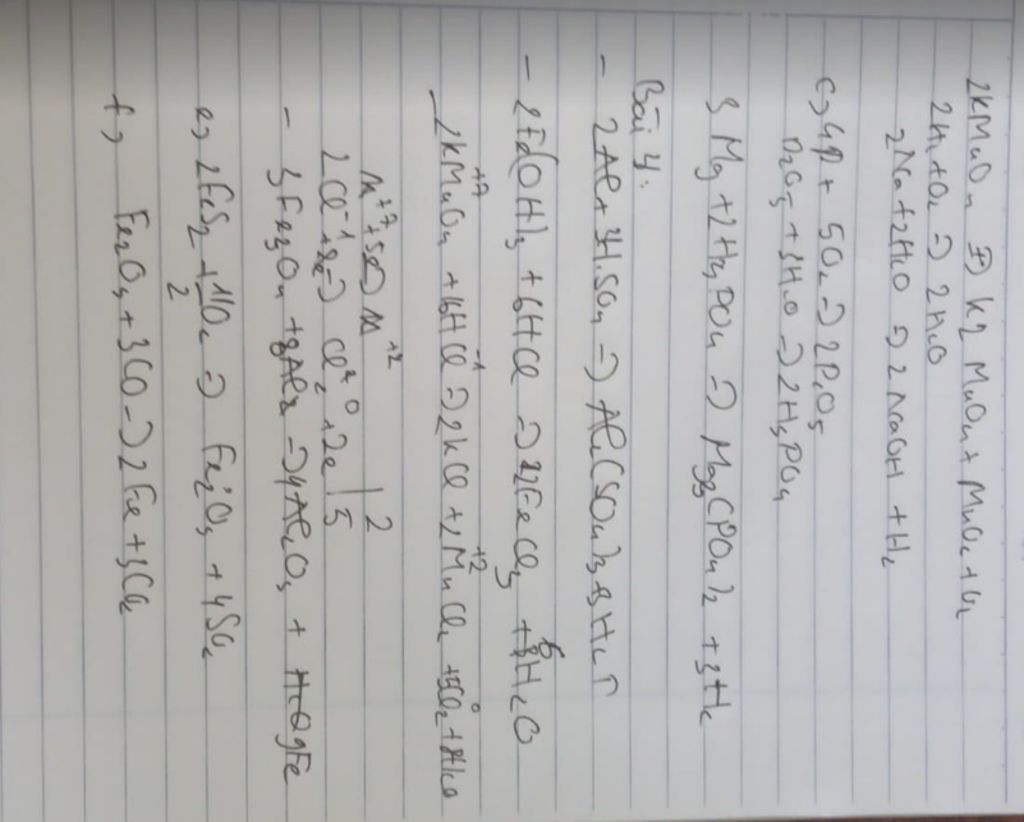 2KMnO4 => K2MnO4 + MnO2 + O2
2H2 + O2 => 2H2O
2Na + 2H2O => 2NaOH + H2
c, 4P + 5O2 => 2P2O5
P2O5 + 3H2O => 2H3PO4
3Mg + 2H3PO4 => Mg3(PO4)2 + 3H2
Bài 4:
- 2Al + 3H2SO4 => Al2(SO4)3 + 3H2↑
- 2Fe(OH)3 + 6HCl => 2FeCl3 + 6H2O
- 2KMnO4 + 16HCl => 2KCl + 2MnCl2 + 5Cl2 + 8H2O
+7 -1 +2 0
M+7 + 5e => M+2 | 2
2Cl-1 => Cl2 0 + 2e | 5
- 3Fe3O4 + 8Al => 4Al2O3 + 9Fe
e, 2FeS2 + 11/2 O2 => Fe2O3 + 4SO2
f, Fe2O3 + 3CO -> 2Fe + 3CO2